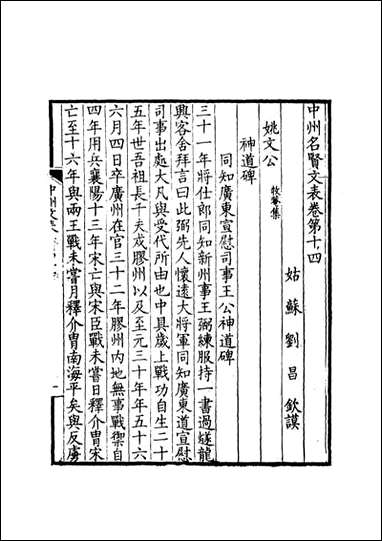 中州名賢文表卷第十四
姑蘇劉昌欽謨
姚文公 牧菴集
神道碑
同知廣東宣慰司事王公神道碑
三十一年將仕郎同知新州事王弼練服持一書過蕿龍
興客舍拜言曰此弼先人懷遠大將軍同知廣東道宣慰
司事出處大凡與受代所由也中具歲上戰功自生二十
五年世吾祖長千夫戍膠州以及至元三十年年五十六
六月四日卒廣州在官三十二年膠州內地無事戰禦自
四年用兵襄陽十三年宋亡與宋臣戰未嘗日釋介胄宋
亡至十六年與兩王戰未嘗月釋介胄南海平矣與反虜
中州文表
一